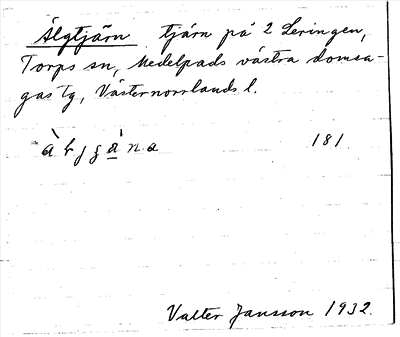 Älgtjärn tjärn på 2 Leringen,
Torps sn, Medelpads västra domsa-
gas tg, Västernorrlands l.
181.
Valter Jansson 1932.